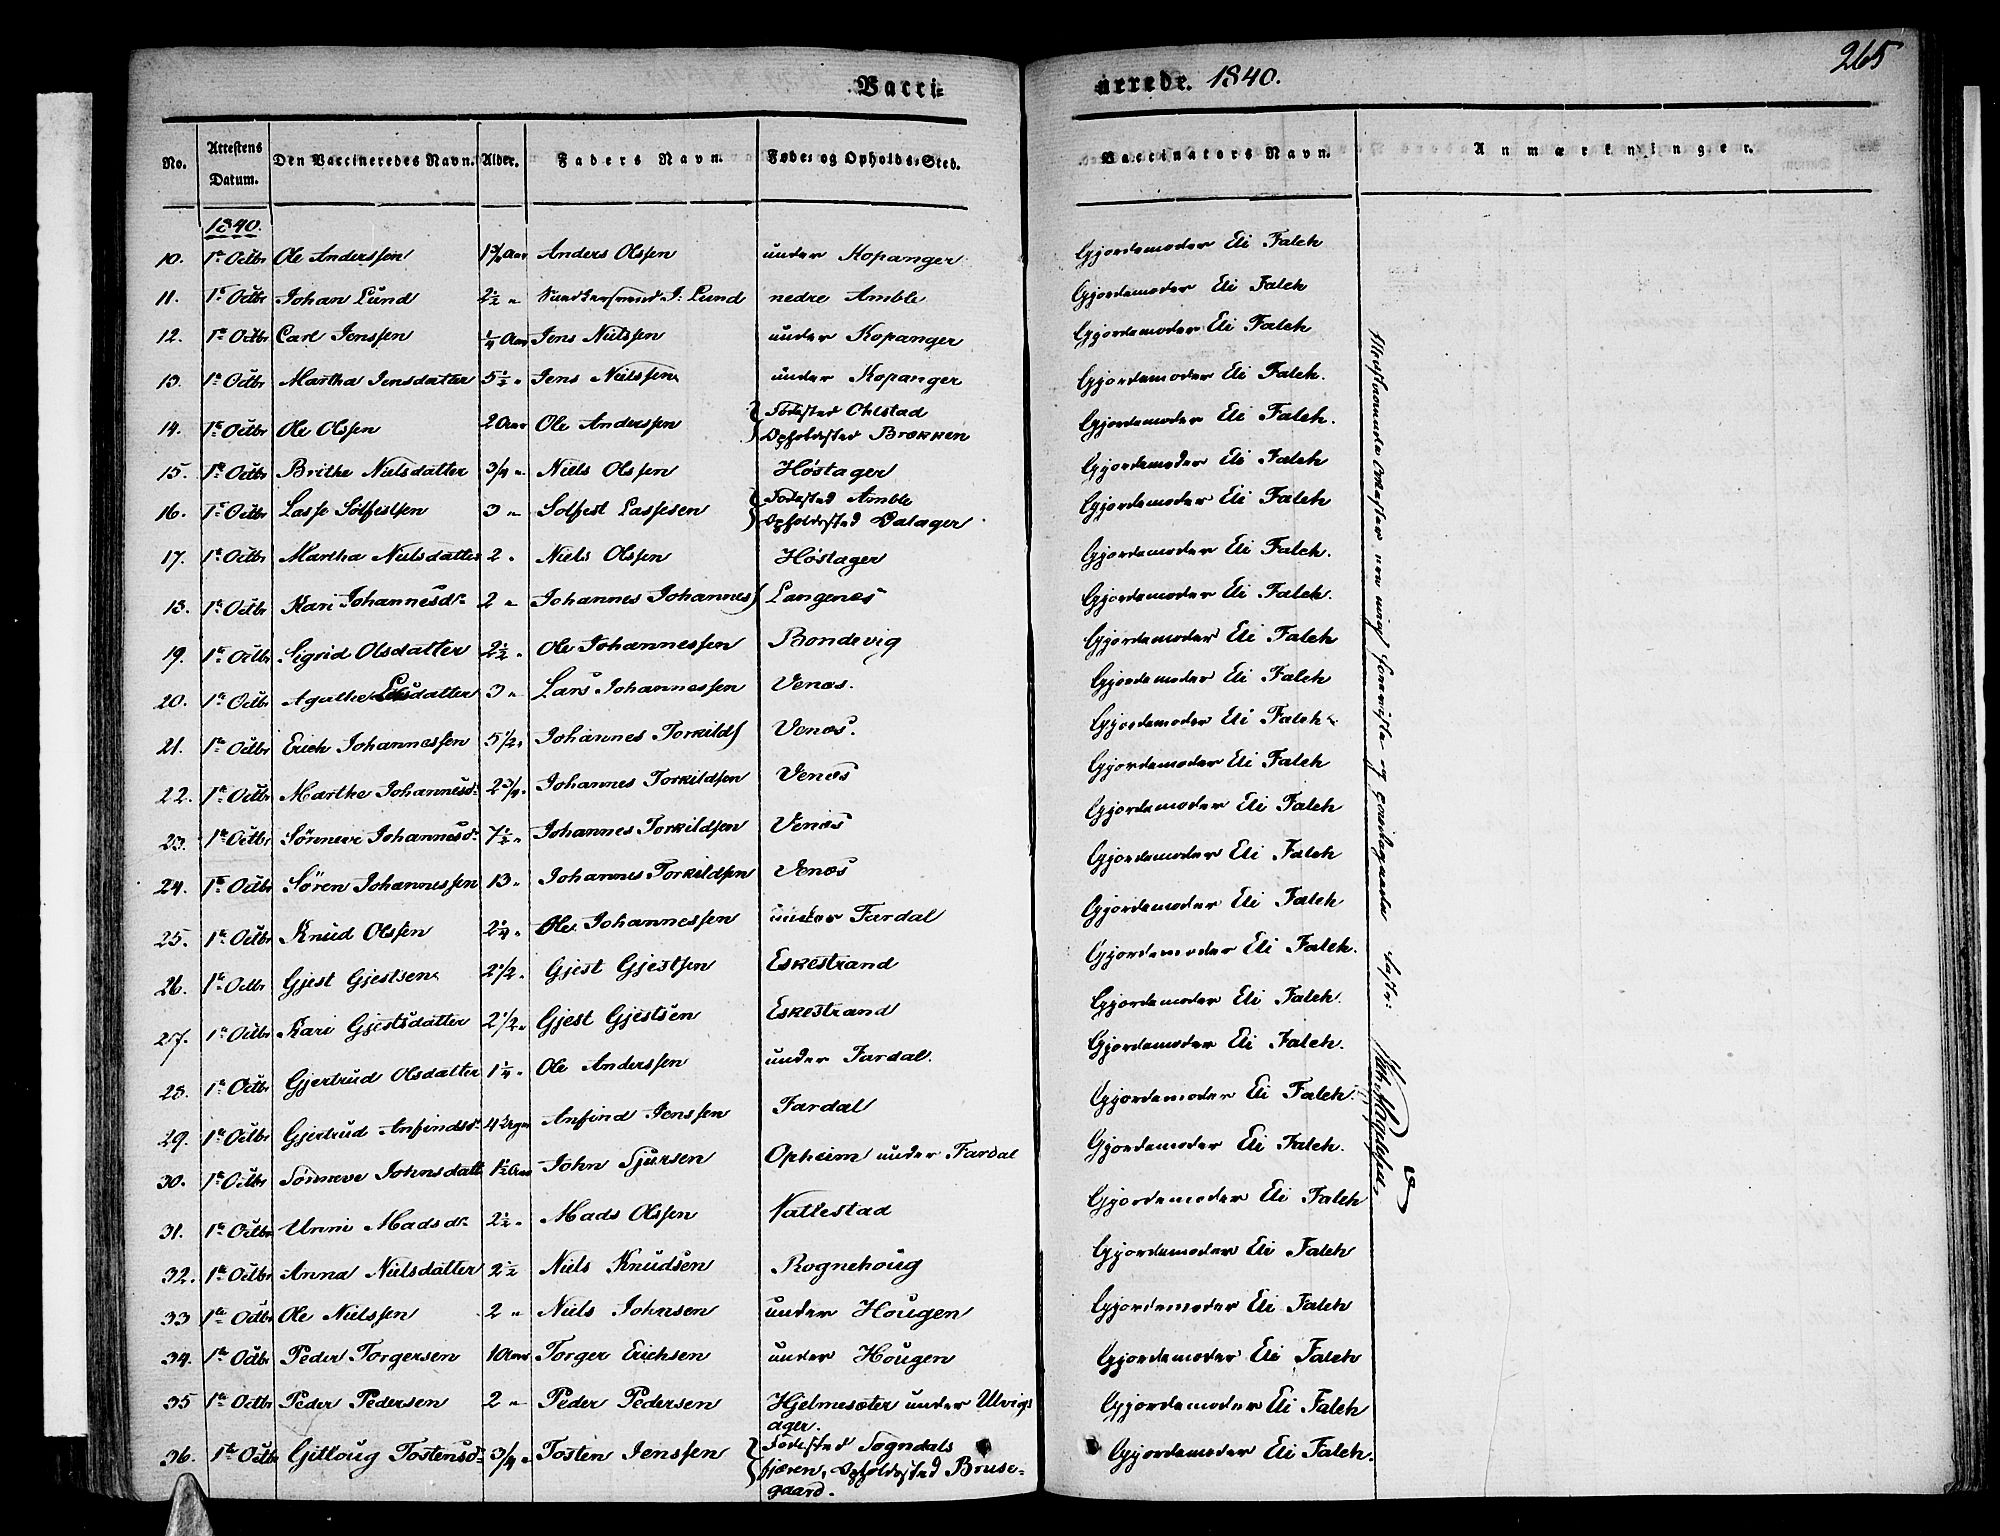 265
Vacci- nerede. 1840.
No. Attestens Datum. Den Vaccineredes Navn. Alder. Faders Navn. Føde- og Opholds-Sted. Vaccinators Navn. Anmærkninger.
1840.
10. 1te Octbr Ole Anderssen Anders Olssen under Kopanger Gjordemoder Eli Falch
11. 1te Octbr Johan Lund 2 1/2 " J: Lund nedre Amble Gjordemoder Eli Falch
12. 1te Octbr Carl Jenssen 1/4 Aar Jens Nielssen under Kopanger Gjordemoder Eli Falch
13. 1te Octbr Martha Jensdatter 5 1/2 " Jens Nielssen under Kopanger Gjordemoder Eli Falch.
14. 1te Octbr Ole Olssen 2 Aar Ole Anderssen Fødested Ohlstad Gjordemoder Eli Falch.
Opholdssted Brækken
15. 1te Octbr Brithe Nielsdatter 3/4 " Niels Olssen Høstager Gjordemoder Eli Falch
16. 1te Octbr Lasse Solfestsen 3 " Solfest Lassesen Fødested Amble Gjordemoder Eli Falch
Opholdssted Dalager
17. 1te Octbr Martha Nielsdatter 2 " Niels Olssen Høstager Gjordemoder Eli Falch.
18. 1te Octbr Kari Johannesdr 2 " Johannes Johannes Langenes Gjordemoder Eli Falch.
19. 1te Octbr Sigrid Olsdatter 2 1/2 " Ole Johannessen Bondevig Gjordemoder Eli Falch
20. 1te Octbr Agathe Larsdatter 3 " Lars Johannessen Venæs. Gjordemoder Eli Falch
21. 1te Octbr Erich Johannessen 5 1/2 " Johannes Torkilds Venæs. Gjordemoder Eli Falch
22. 1te Octbr Marthe Johannesdr 2 3/4 " Johannes Torkildsen Venæs Gjordemoder Eli Falch
23. 1te Octbr Sønneve Johannesdr 7 1/2 " Johannes Torkildsen Venæs Gjordemoder Eli Falch
24. 1te Octbr Søren Johannessen 13 " Johannes Torkildsen Venæs Gjordemoder Eli Falch
25. 1te Octbr Knud Olssen 2 1/4 " Ole Johannessen under Fardal Gjordemoder Eli Falch
26. 1te Octbr Gjest Gjestsen 2 1/2 " Gjest Gjestsen Eskestrand Gjordemoder Eli Falch.
27. 1te Octbr Kari Gjestsdatter 2 1/2 " Gjest Gjestsen Eskestrand Gjordemoder Eli Falch.
28. 1te Octbr Gjertrud Olsdatter 1 1/4 " Ole Anderssen under Fardal. Gjordemoder Eli Falch.
29. 1te Octbr Gjertrud Anfindsdr 4 Uger Anfind Jenssen Fardal Gjordemoder Eli Falch.
30. 1te Octbr Sønneve Johnsdatt 1 1/2 Aar John Sjursen Opheim under Fardal Gjordemoder Eli Falch.
31. 1te Octbr Unni Madsdr 2 1/2 " Mads Olssen Nattestad Gjordemoder Eli Falch
32. 1te Octbr Anna Nielsdatter 2 1/2 Niels Knudsen Rognehoug Gjordemoder Eli Falch
33 1te Octbr Ole Nielssen 2 " Niels Johnsen under Hougen Gjordemoder Eli Falch
34. 1te Octbr Peder Torgersen Torger Erichsen under Hougen Gjordemoder Eli Falch
35 1te Octbr Peder Pedersen 2 " Peder Pedersen Hjelmesæter under Ulvigs Gjordemoder Eli Falch
ager.
36. 1te Octbr Gitloug Tostensdr 3/4 " Tosten Jenssen Fødested Sogndals Gjordemoder Eli Falch.
fjæren, Opholdssted Bruse-
gaard.
Attester og